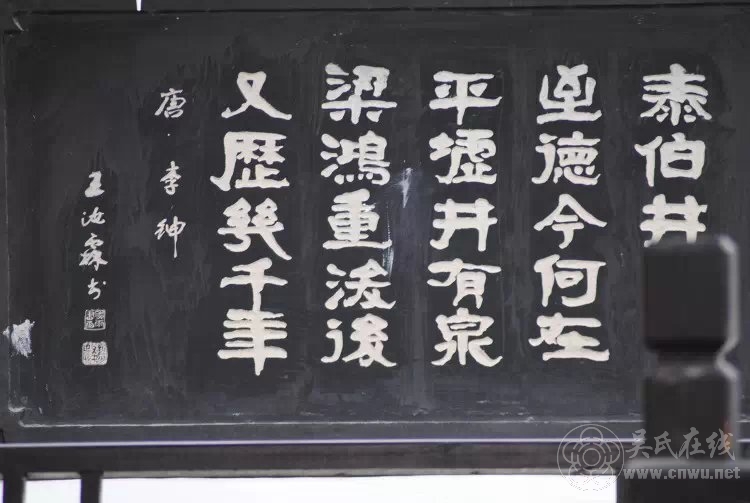 泰伯井
至德今何在
平墟井有泉
梁鸿重浚後
又歷幾千年
唐·李绅
王汝霖书
吴氏在线
www.cnwu.net